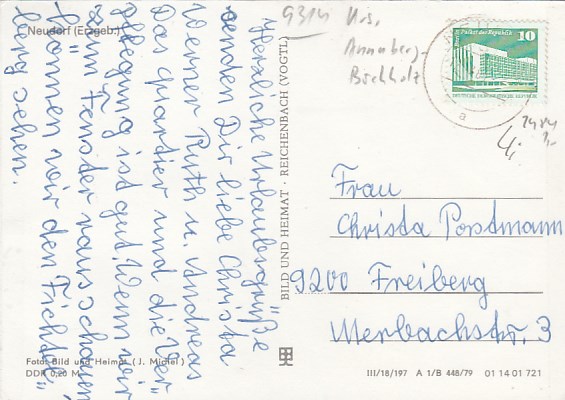 Neudorf (Erzgeb.)
Herzliche Urlaubsgrüße
senden Dir liebe Christa
Werner Ruth u. Andreas
Das Quartier und die Ver"
pflegung ist gut. Wenn wir
zum Fenster raus schauen
können wir den Fichtel"
berg sehen.
Foto: Bild und Heimat (J. Michel)
DDR 0,20 M
BILD UND HEIMAT · REICHENBACH (VOGTL)
9314 Kr.
Annaberg-
Buchholz
Palast der Republik
10
DEUTSCHE DEMOKRATISCHE REPUBLIK
a
Frau
Christa Postmann
9200 Freiberg
Merbachstr. 3
III/18/197 A 1/B 448/79 01 14 01 721